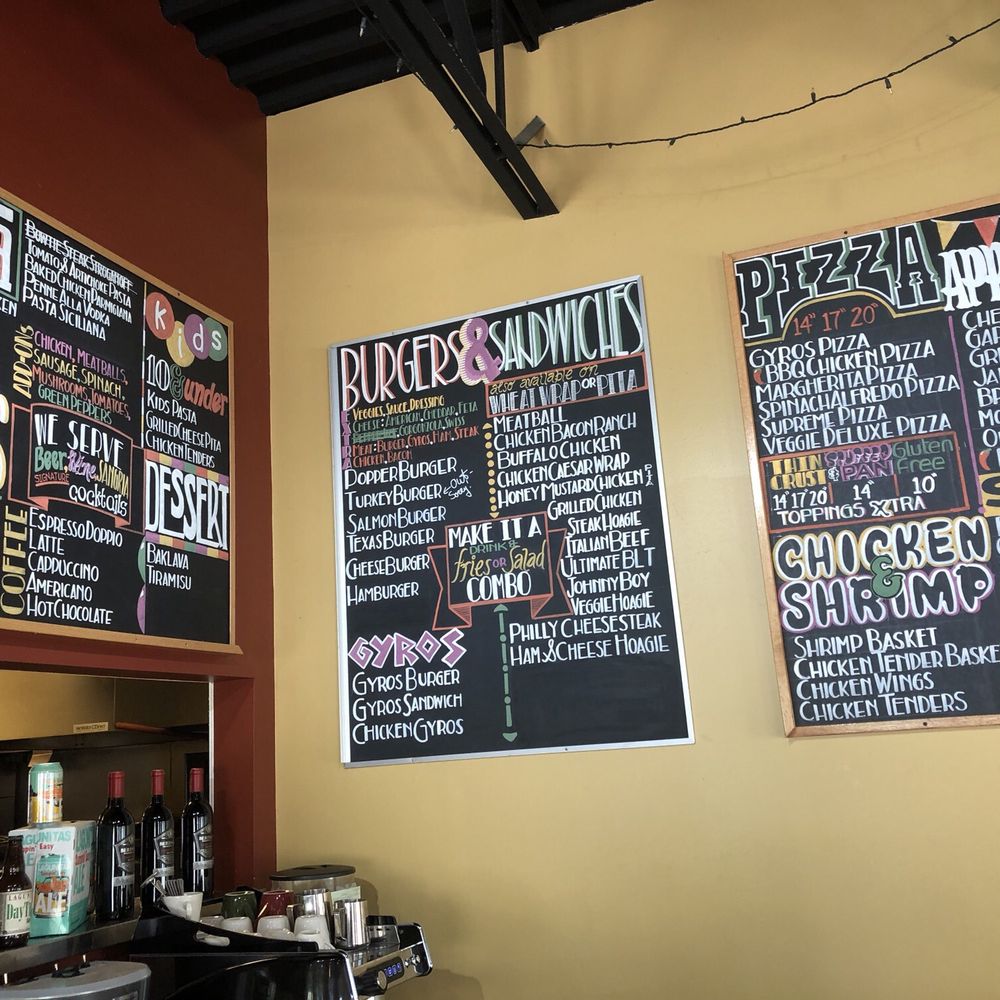 Bowtie Steak Stroganoff
Tomato & Artichoke Pasta
Baked Chicken Parmigiana
Penne Alla Vodka
Pasta Siciliana
ADD-ONs
Chicken, Meatballs,
Sausage, Spinach,
Mushrooms, Tomatoes,
Green Peppers
WE SERVE
Beer, Wine, SANGRIA
SIGNATURE
cocktails
COFFEE
Espresso Doppio
Latte
Cappuccino
Americano
Hot Chocolate
kids
10 & under
Kids Pasta
Grilled Cheese Pita
Chicken Tenders
DESSERT
Baklava
Tiramisu
BURGERS & SANDWICHES
also available on
WHEAT WRAP OR PITA
EXTRA
Veggies, Sauce, Dressing
Cheese: American, Cheddar, Feta
Gorgonzola, Swiss
Meat: Burger, Gyros, Ham, Steak
Chicken, Bacon
Dopper Burger
Turkey Burger
Salmon Burger
Texas Burger
Cheese Burger
Hamburger
Meatball
Chicken Bacon Ranch
Buffalo Chicken
Chicken Caesar Wrap
Honey Mustard Chicken
Grilled Chicken
Steak Hoagie
Italian Beef
Ultimate BLT
Johnny Boy
Veggie Hoagie
Philly Cheesesteak
Ham & Cheese Hoagie
MAKE IT A
DRINK &
fries OR Salad
COMBO
GYROS
Gyros Burger
Gyros Sandwich
Chicken Gyros
PIZZA
14" 17" 20"
Gyros Pizza
BBQ Chicken Pizza
Margherita Pizza
Spinach Alfredo Pizza
Supreme Pizza
Veggie Deluxe Pizza
THIN CRUST
14" 17" 20"
STUFFED PAN
14"
Gluten Free
10"
TOPPINGS EXTRA
CHICKEN & SHRIMP
Shrimp Basket
Chicken Tender Baske
Chicken Wings
Chicken Tenders
APP
LAGUNITAS
ALE